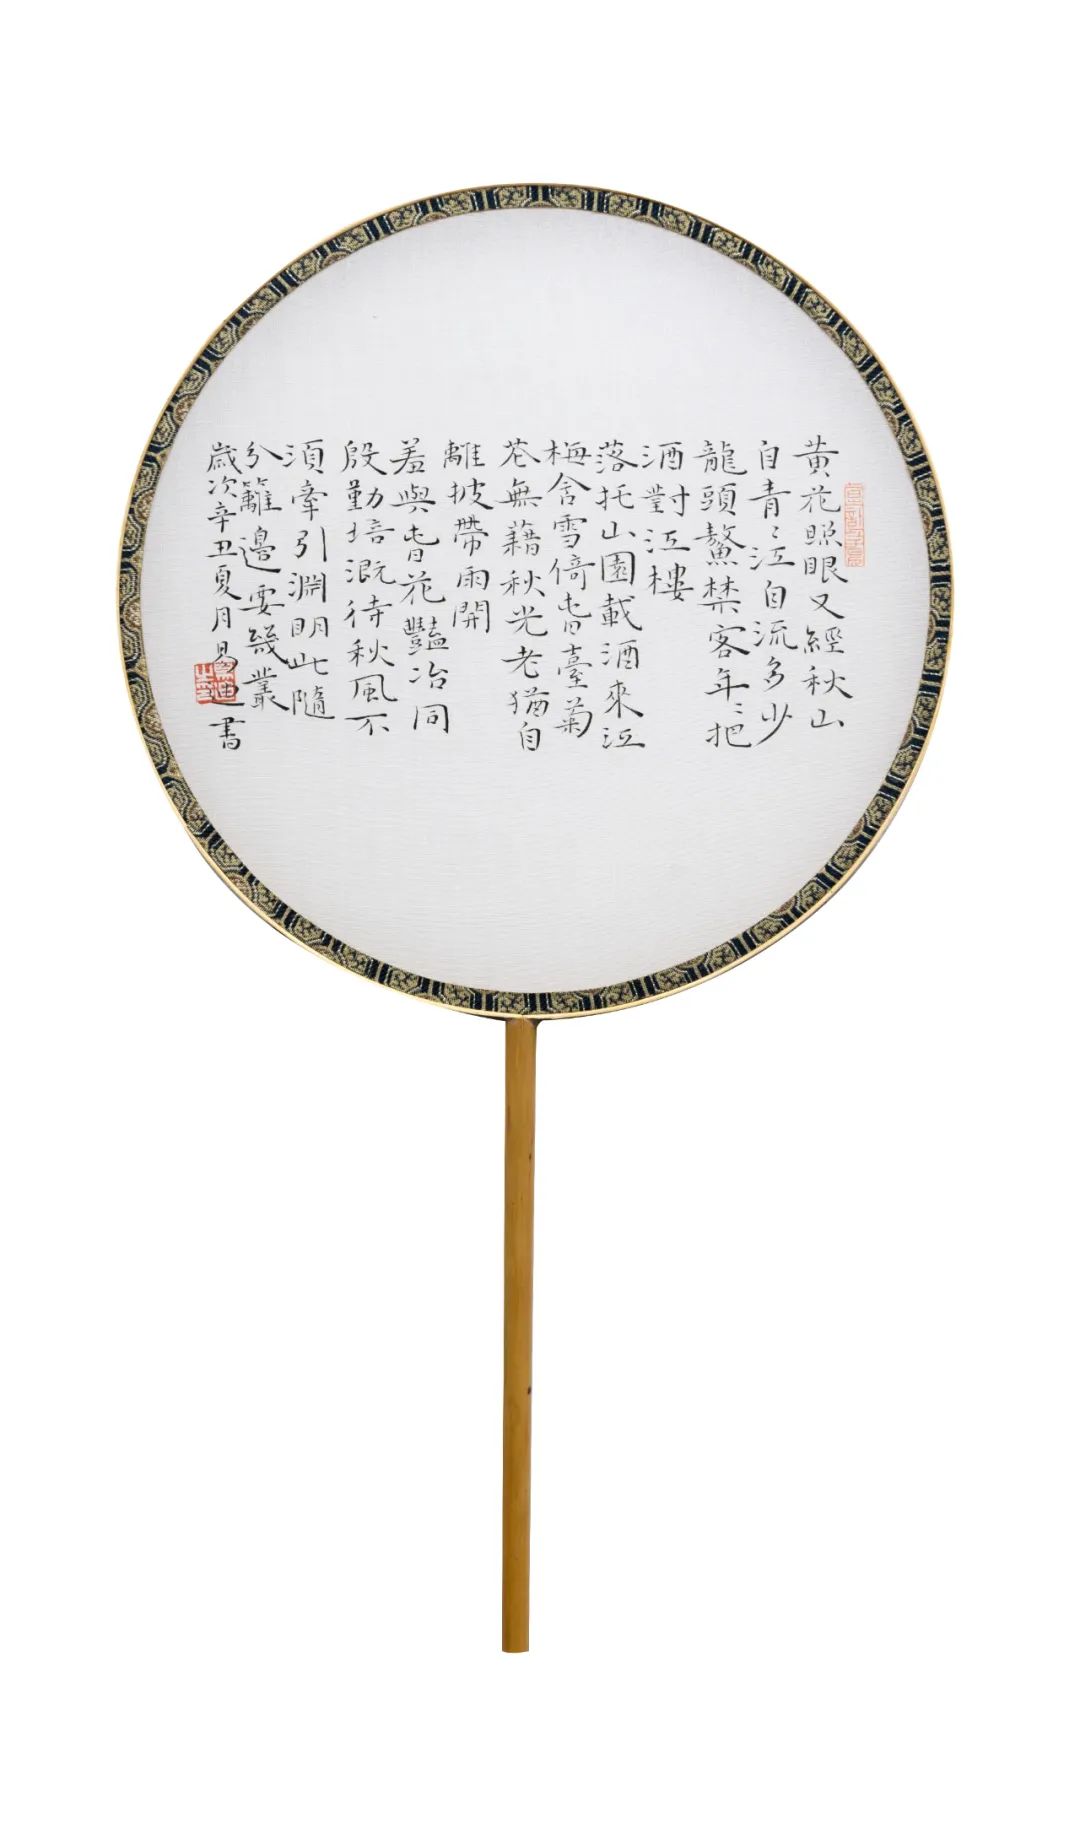 黄花照眼又經秋山
自青〻江自流多少
龍頭鰲禁客年〻把
酒對江樓
落托山園載酒來江
梅含雪倚春臺菊
花無藉秋光老猶自
離披帶雨開
羞與春花豔冶同
殷勤培溉待秋風不
須牽引淵明比隨
分籬邊要幾叢
歲次辛丑夏月易迪書